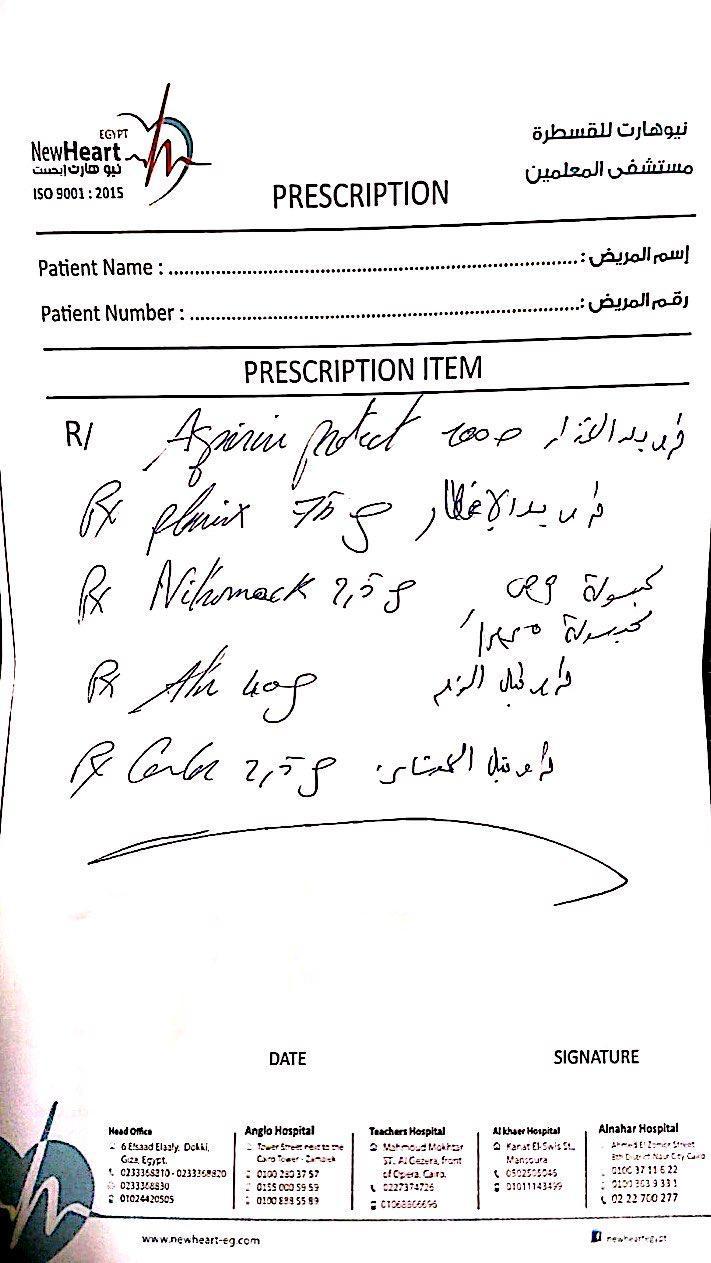 EGYPT
NewHeart
نيو هارت إيجبت
ISO 9001 : 2015
نيوهارت للقسطرة
مستشفى المعلمين
PRESCRIPTION
Patient Name : إسم المريض :
Patient Number : رقم المريض :
PRESCRIPTION ITEM
R/ Aspirin protect 100 قرص بعد الغذاء
Rx plavix 75 قرص بعد الإفطار
Rx Nitromack 2,5 كبسولة
كبسولة مساءً
Rx 40 قرص قبل النوم
Rx 2,5 قرص قبل
DATE
SIGNATURE
Head Office
6 Elsaad Elaaly, Dokki,
Giza, Egypt.
0233368310 - 0233368820
0233368830
01024420505
Anglo Hospital
Tower Street next to the
Cairo Tower - Zamalek
0100 280 37 57
0155 000 59 59
0100 888 55 89
Teachers Hospital
Mahmoud Mokhtar
ST. Al Gezera, front
of Opera, Cairo.
0227374726
Al khaer Hospital
Kanat El-Swis St.,
Mansoura
01011143499
Alnahar Hospital
Ahmed El Zomor Street
8th District Nasr City Cairo
0100 37 11 6 22
02 22 700 277
www.newheart-eg.com
newheartegypt